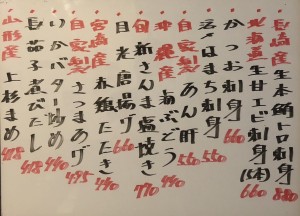 長崎産生本鮪トロ刺身 880
北海道産生甘エビ刺身(5本) 660
かつお刺身 660
活〆はまち刺身 550
自家製あん肝 550
沖縄産海ぶどう 440
旬新さんま塩焼き 770
目光唐揚げ 660
宮崎産赤鶏たたき
自家製さつまあげ 495
いかバター炒め 490
長茄子煮びたし 418
山形産上杉まめ 418